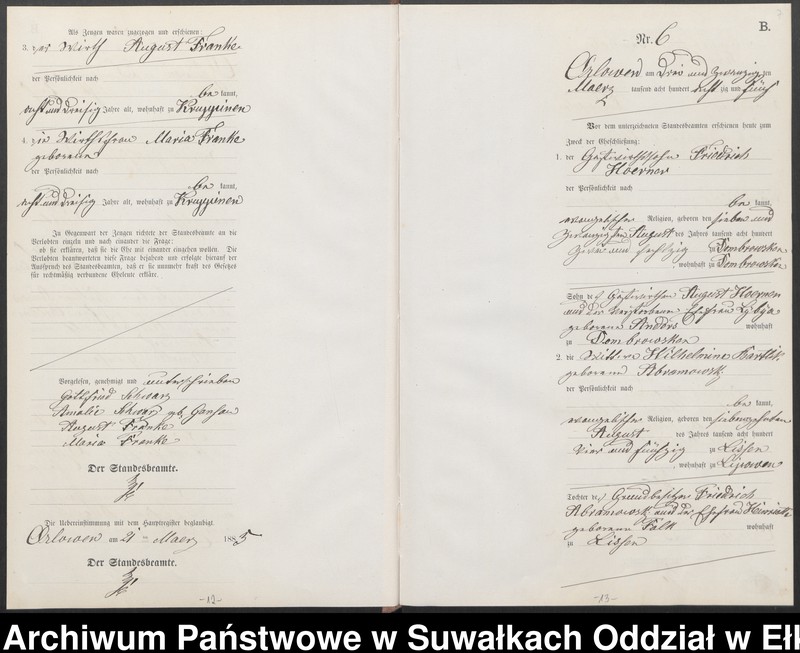 Als Zeugen waren zugezogen und erschienen:
3. der Wirth August Franke
der Persönlichkeit nach
be kannt,
acht und dreißig Jahre alt, wohnhaft zu Kruppinen
4. die Wirthsfrau Maria Franke
geborene
der Persönlichkeit nach
be kannt,
acht und dreißig Jahre alt, wohnhaft zu Kruppinen
In Gegenwart der Zeugen richtete der Standesbeamte an die
Verlobten einzeln und nach einander die Frage:
ob sie erklären, daß sie die Ehe mit einander eingehen wollen. Die
Verlobten beantworteten diese Frage bejahend und erfolgte hierauf der
Ausspruch des Standesbeamten, daß er sie nunmehr kraft des Gesetzes
für rechtmäßig verbundene Eheleute erkläre.
Vorgelesen, genehmigt und unterschrieben
Gottfried Schwarz
Amalie Schwarz geb.
August Franke
Maria Franke
Der Standesbeamte.
Die Uebereinstimmung mit dem Hauptregister beglaubigt
Orlowen am 21 ten Maerz 1885
Der Standesbeamte.
-12-
B.
Nr. 6
Orlowen am drei und zwanzig ten
Maerz tausend acht hundert acht zig und fünf
Vor dem unterzeichneten Standesbeamten erschienen heute zum
Zweck der Eheschließung:
1. der Gastwirthssohn Friedrich
Hoerner
der Persönlichkeit nach
be kannt,
evangelischer Religion, geboren den sieben und
zwanzigsten August des Jahres tausend acht hundert
zwei und sechszig zu Dombrowsken
, wohnhaft zu Dombrowsken
Sohn des Gastwirthen August Hoerner
und der verstorbenen Ehefrau
geborene Anders wohnhaft
zu Dombrowsken
2. die Wittwe Wilhelmine Bartlik
geborene Abramowski
der Persönlichkeit nach
be kannt,
evangelischer Religion, geboren den siebenzehnten
August des Jahres tausend acht hundert
vier und fünfzig zu Lissen
, wohnhaft zu Lipowen
Tochter des Grundbesitzer Friedrich
Abramowski und der Ehefrau Henriette
geborene Falk wohnhaft
zu Lissen
-13-
Archiwum Państwowe w Suwałkach Oddział w Ełk